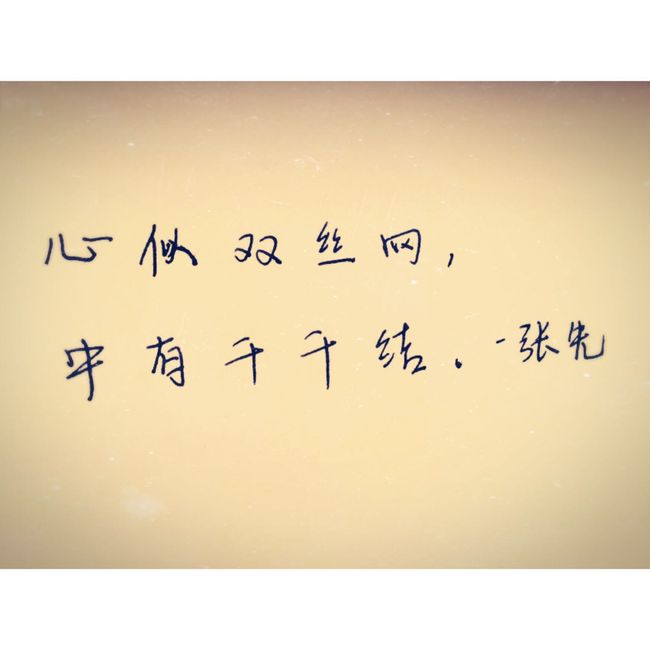 心似双丝网，
中有千千结。-张先